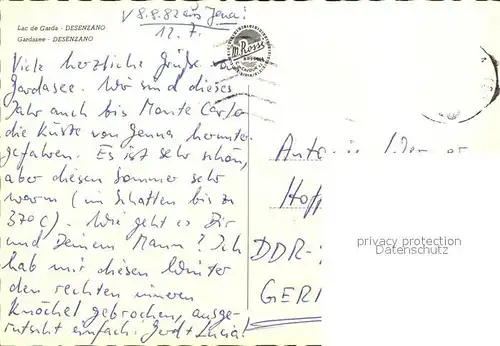 V 8.8.82 aus Jena!
Lac de Garda - DESENZANO
Gardasee - DESENZANO
12.7.
m. Rossi
Viele herzliche Grüße vom
Gardasee. Wir sind dieses
Jahr auch bis Monte Carlo
die Küste von Genua herunter-
gefahren. Es ist sehr schön,
aber diesen Sommer sehr
warm (im Schatten bis zu
37°C). Wie geht es Dir
und Deinem Mann? Ich
hab mir diesen Winter
den rechten inneren
Knöchel gebrochen, ausge-
rutscht einfach. Gerd + Lucia!
Hoff
DDR-
GER
privacy protection
Datenschutz